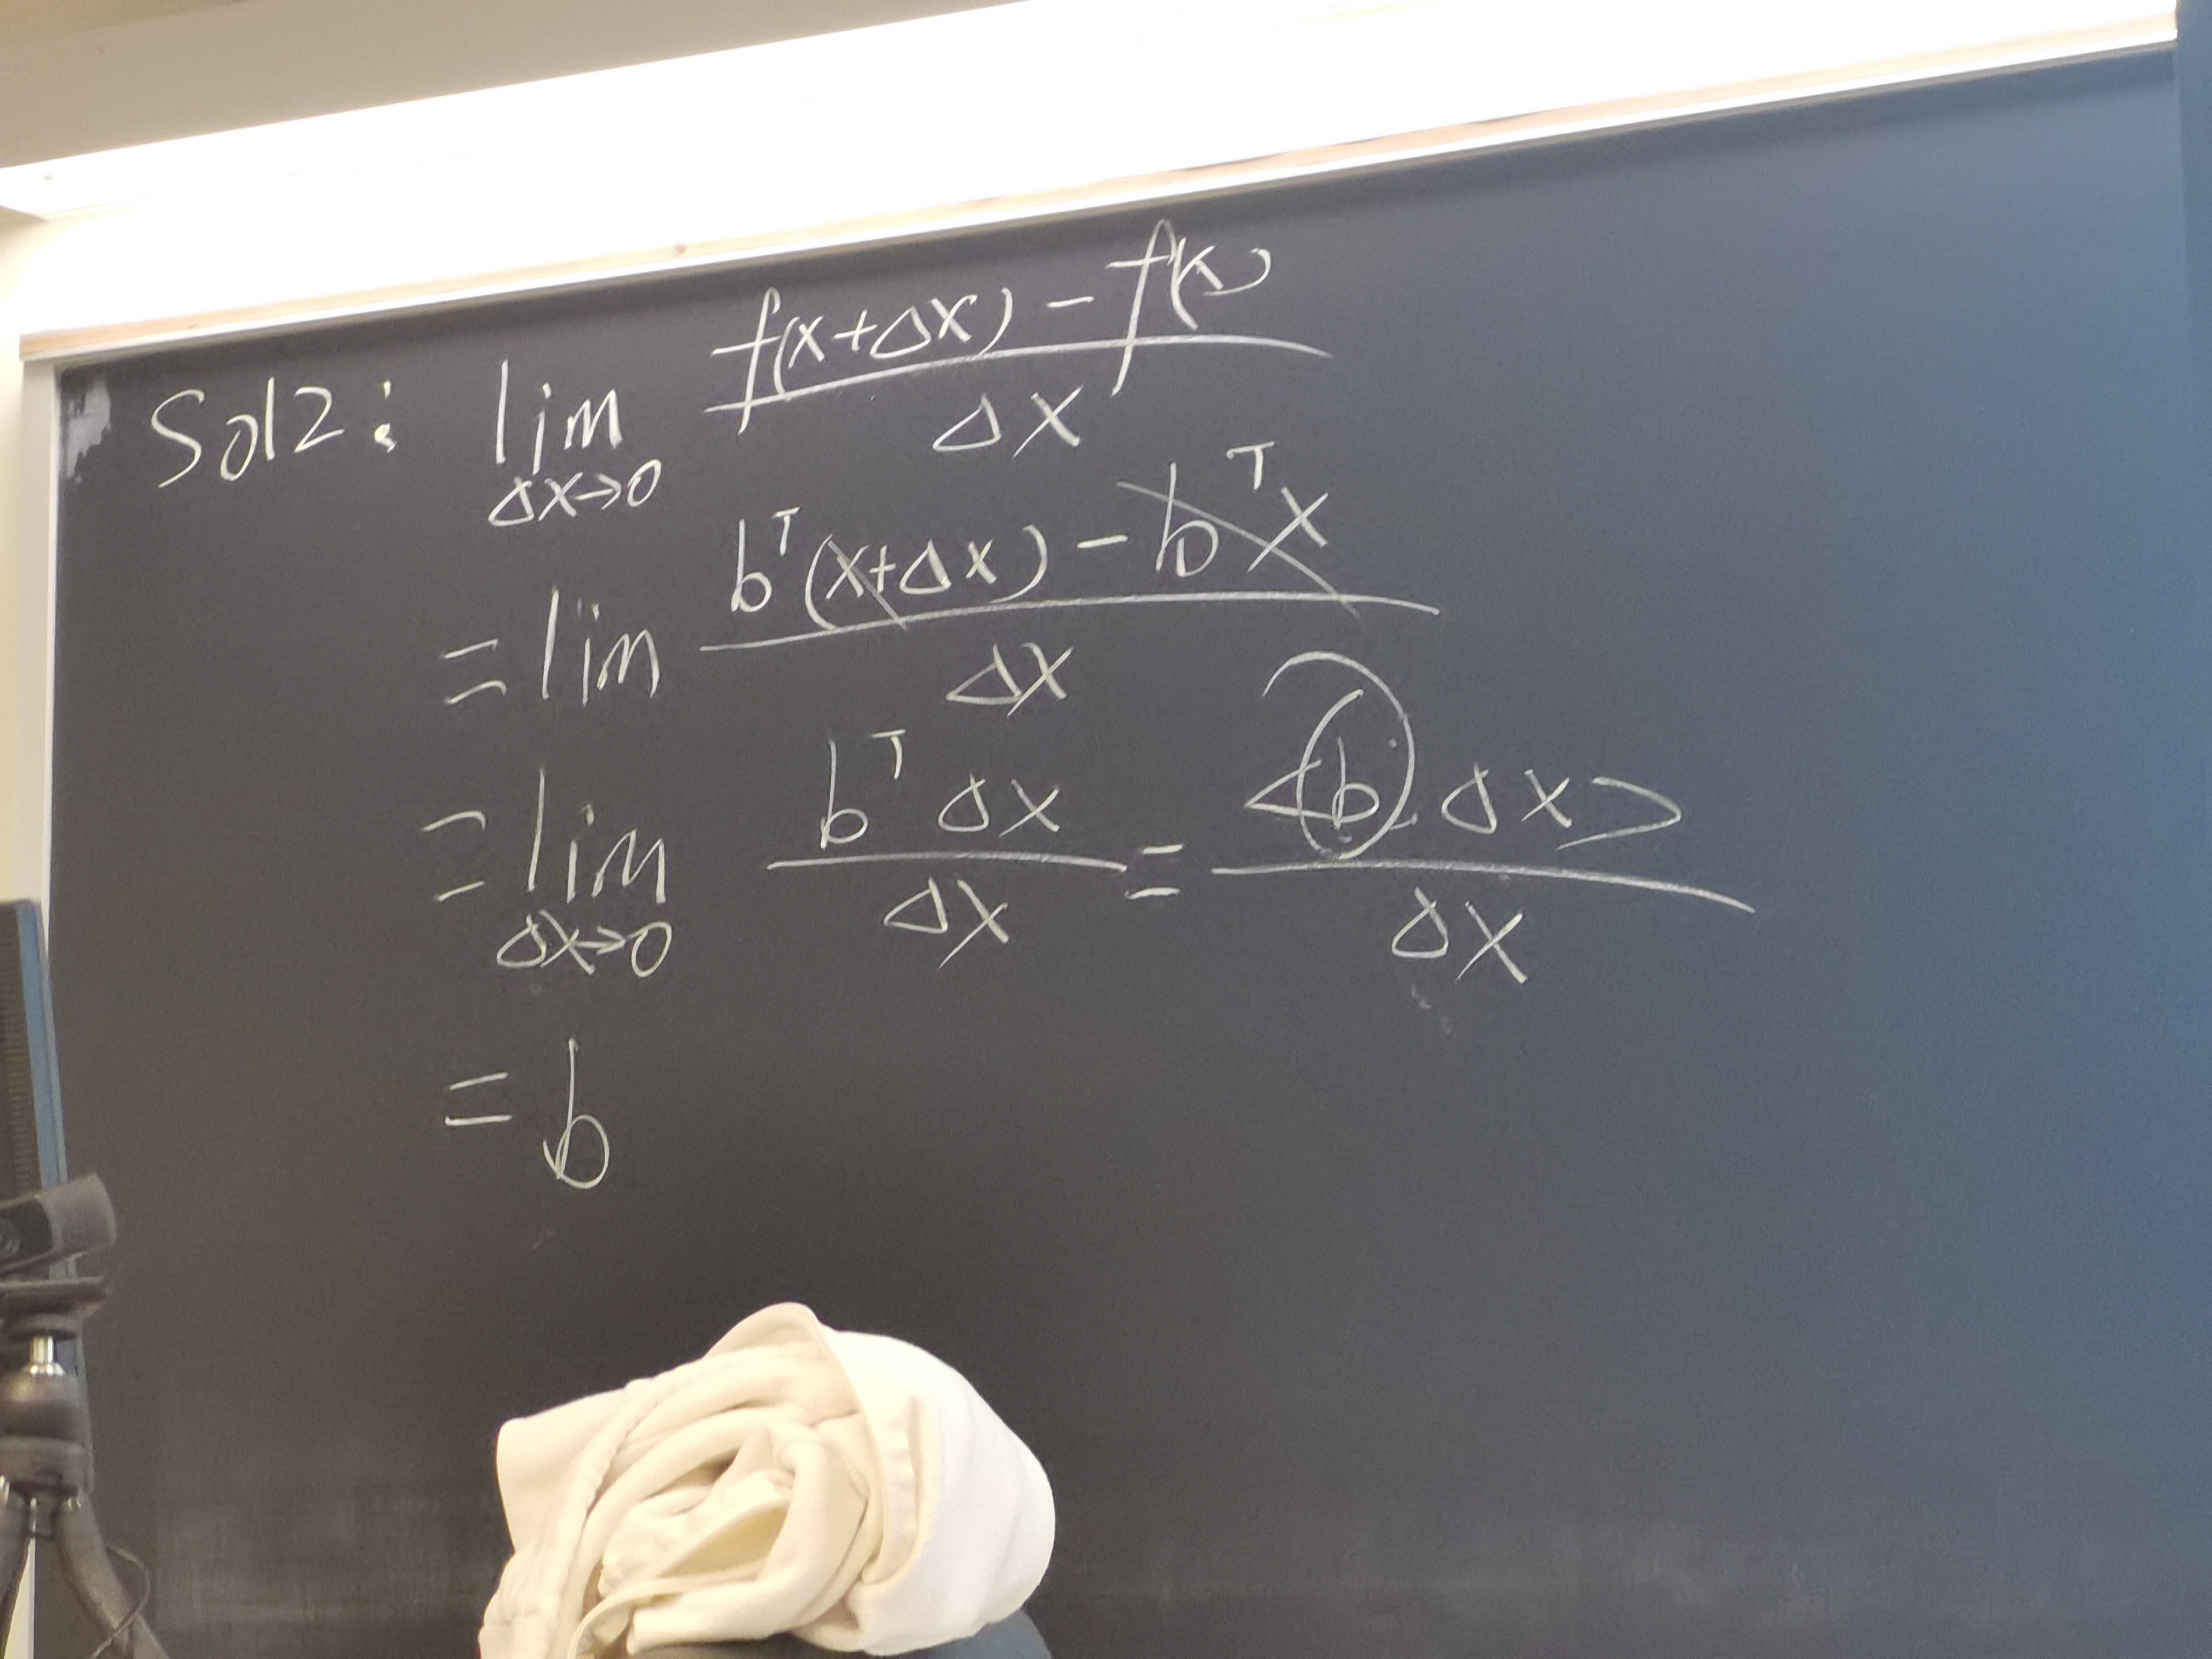 Sol2: lim Δx→0 f(x+Δx) - f(x) / Δx
= lim bᵀ(x+Δx) - bᵀx / Δx
= lim Δx→0 bᵀ Δx / Δx = <b, Δx> / Δx
= b